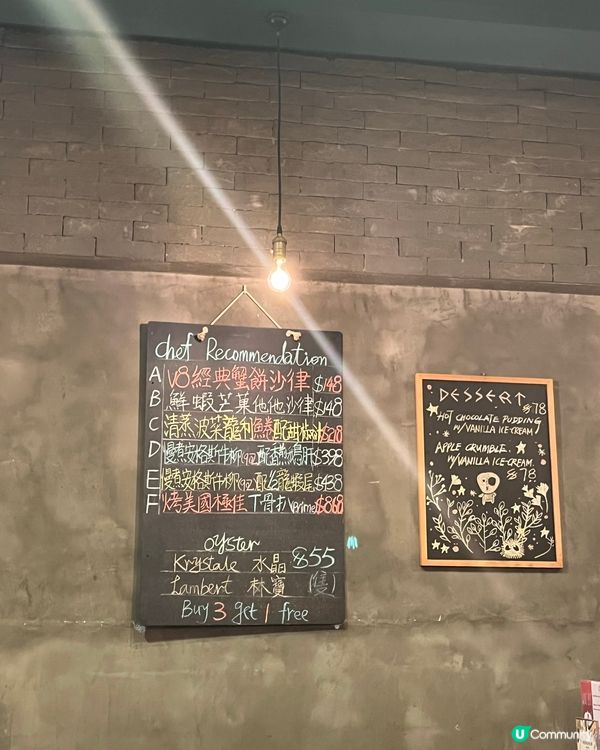 Chef Recommendation
A V8經典蟹餅沙律 $148
B 鮮蝦芒菓他他沙律 $148
C 清蒸波菜龍利魚卷配甜椒汁 $218
D 慢煮安格斯牛柳(9oz)配香煎鴨肝 $398
E 慢煮安格斯牛柳(9oz)配龍蝦尾 $438
F 烤美國極佳T骨扒 $868
oyster
Krystale 水晶 $55
Lambert 林寶 (隻)
Buy 3 get 1 free
DESSERT
HOT CHOCOLATE PUDDING $78
W/VANILLA ICE-CREAM
APPLE CRUMBLE
W/VANILLA ICE-CREAM.
$78
U Community